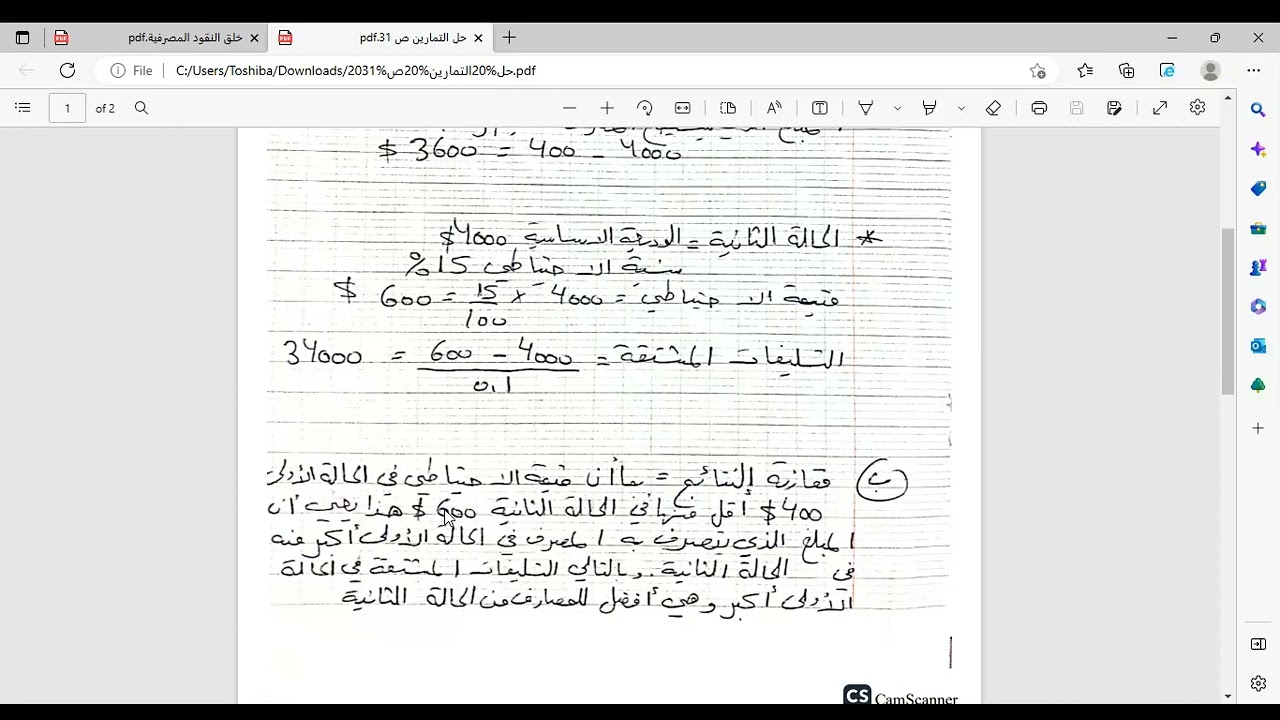 خلق النقود المصرفية.pdf
حل التمارين ص 31.pdf
File
C:/Users/Toshiba/Downloads/حل%20التمارين%20ص%2031.pdf
1 of 2
4000 - 400 = 3600 $
* الحالة الثانية = الوديعة الاساسية 4000$
نسبة الاحتياطي 15 %
قيمة الاحتياطي = 4000 × 15 = 600 $
100
التسليفات المشتقة = 4000 - 600 = 34000
0,1
ب مقارنة النتائج = بما أن قيمة الاحتياطي في الحالة الأولى
400 $ أقل منها في الحالة الثانية 600 $ هذا يعني ان
المبلغ الذي يتصرف به المصرف في الحالة الأولى أكبر منه
في الحالة الثانية. وبالتالي التسليفات المشتقة في الحالة
الأولى أكبر وهي أفضل للمصارف من الحالة الثانية
CS CamScanner